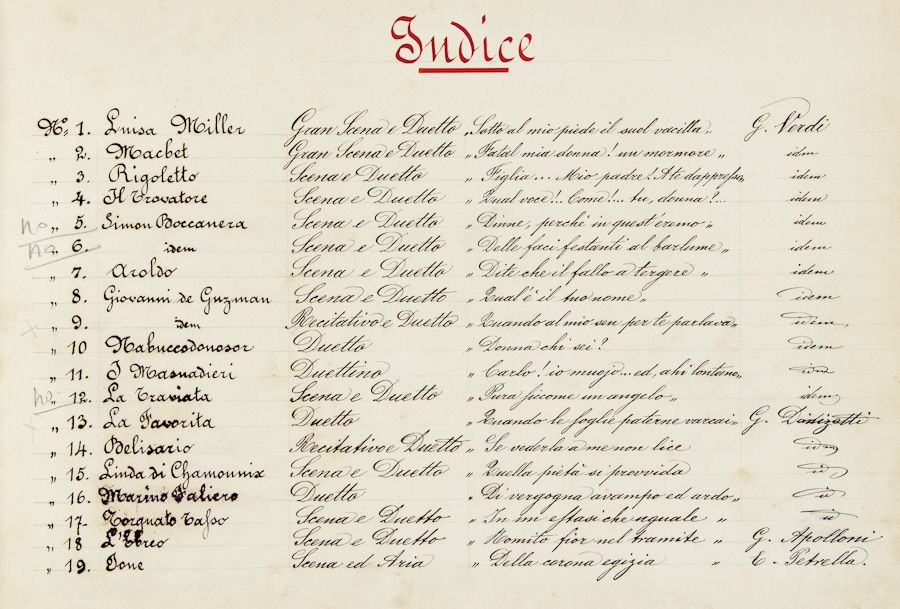 Indice
Nº 1. Luisa Miller Gran Scena e Duetto „Sotto al mio piede il suol vacilla„ G. Verdi
„ 2. Macbet Gran Scena e Duetto „Fatal mia donna! un mormore„ idem
„ 3. Rigoletto Scena e Duetto „Figlia... Mio padre! A te dappresso„ idem
„ 4. Il Trovatore Scena e Duetto „Qual voce!.. Come!... tu, donna?... idem
no „ 5. Simon Boccanera Scena e Duetto „Dinne, perchè in quest'eremo„ idem
no „ 6. idem Scena e Duetto „Delle faci festanti al barlume„ idem
„ 7. Aroldo Scena e Duetto „Dite che il fallo a tergere„ idem
„ 8. Giovanni de Guzman Scena e Duetto „Qual'è il tuo nome„ idem
x „ 9. idem Recitativo e Duetto „Quando al mio sen per te parlava„ idem
„ 10 Nabuccodonosor Duetto „Donna chi sei? idem
„ 11. I Masnadieri Duettino „Carlo! io muojo... ed, ahi lontano„ idem
no „ 12. La Traviata Scena e Duetto „Pura siccome un angelo„ idem
„ 13. La Favorita Duetto „Quando le soglie paterne varcai„ G. Donizetti
„ 14. Belisario Recitativo e Duetto „Se vederla a me non lice id
„ 15. Linda di Chamounix Scena e Duetto „Quella pietà si provvida id
„ 16. Marino Faliero Duetto „Di vergogna avampo ed ardo„ id
„ 17 Torquato Tasso Scena e Duetto „In un estasi che uguale„ id
„ 18 L'Ebreo Scena e Duetto „Romito fior nel tramite„ G. Apolloni
„ 19. Jone Scena ed Aria „Della corona egizia„ E. Petrella.